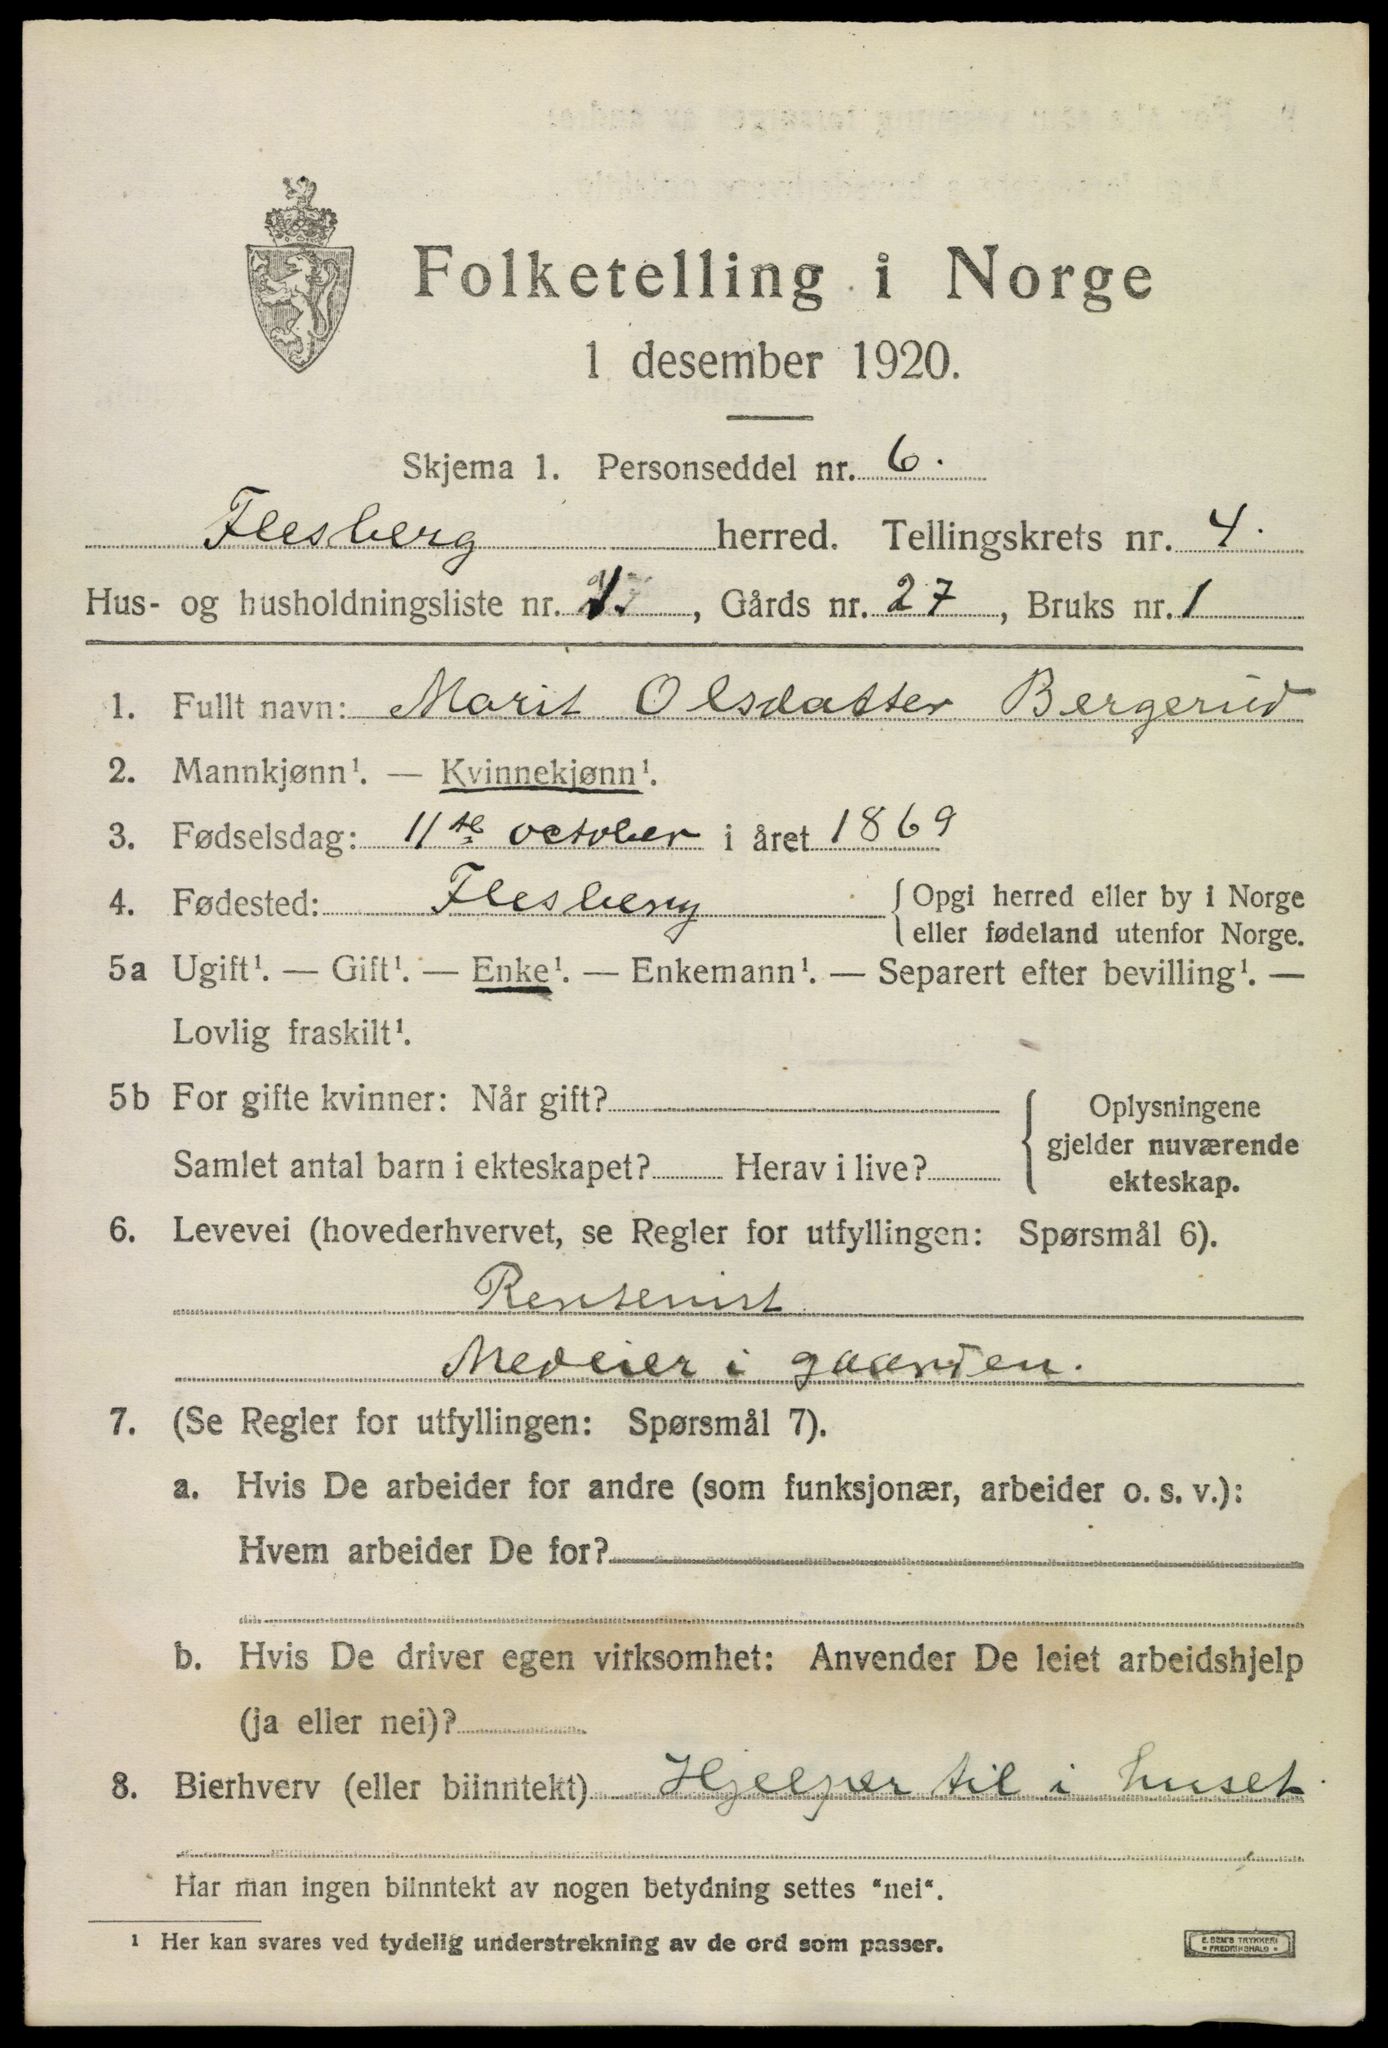 Folketelling i Norge
1 desember 1920.
Skjema 1. Personseddel nr. 6.
Flesberg herred. Tellingskrets nr. 4.
Hus- og husholdningsliste nr. 1., Gårds nr. 27, Bruks nr. 1
1. Fullt navn: Marit Olsdatter Bergerud
2. Mannkjønn¹. — Kvinnekjønn¹.
3. Fødselsdag: 11te october i året 1869
4. Fødested: Flesberg { Opgi herred eller by i Norge
eller fødeland utenfor Norge.
5a Ugift¹. — Gift¹. — Enke¹. — Enkemann¹. — Separert efter bevilling¹. —
Lovlig fraskilt¹.
5b For gifte kvinner: Når gift?
Samlet antal barn i ekteskapet? Herav i live?
{ Oplysningene
gjelder nuværende
ekteskap.
6. Levevei (hovederhvervet, se Regler for utfyllingen: Spørsmål 6).
Rentenist
Medeier i gaarden.
7. (Se Regler for utfyllingen: Spørsmål 7).
a. Hvis De arbeider for andre (som funksjonær, arbeider o. s. v.):
Hvem arbeider De for?
b. Hvis De driver egen virksomhet: Anvender De leiet arbeidshjelp
(ja eller nei)?
8. Bierhverv (eller biinntekt) Hjelper til i huset
Har man ingen biinntekt av nogen betydning settes "nei".
¹ Her kan svares ved tydelig understrekning av de ord som passer.
E. SEM'S TRYKKERI
• FREDRIKSHALD •